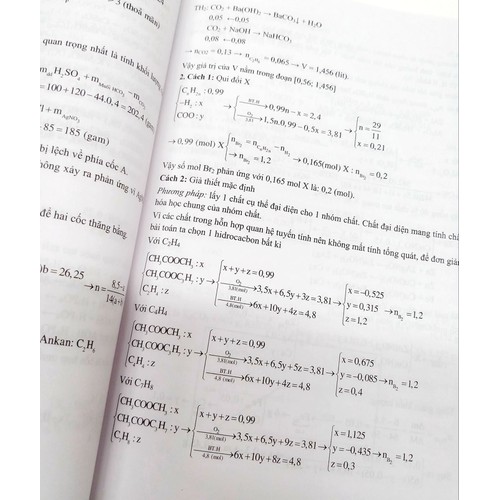 3 (thoả mãn)
quan trọng nhất là tính khối lượng
H₂SO₄ + m
=100+120-44.0,4 = 202,4 (gam)
+ m AgNO₃
85=185 (gam)
bị lệch về phía cốc A.
không xảy ra phản ứng vì Ag
để hai cốc thăng bằng
)b = 26,25
Ankan: C₂H₆
TH₂: CO₂ + Ba(OH)₂ → BaCO₃↓ + H₂O
0,05 ←0,05
CO₂ + NaOH → NaHCO₃
0,08 ←0,08
→ n CO₂ = 0,13 → = 0,065 → V = 1,456 (lít).
Vậy giá trị của V nằm trong đoạn [0,56; 1,456]
2. Cách 1: Qui đổi X
{CₙH₂ₙ : 0,99
-H₂ : x
COO : y → {BT.H → 0,99n - x = 2,4
O₂ 3,81 → 1,5n.0,99 - 0,5x = 3,81 → {n = 29/11
x = 0,21
→ 0,99 (mol) X {n Br₂ = n CₙH₂ₙ - n H₂
→ n = 1,2 → 0,165(mol) X : n Br₂ = 0,2
Vậy số mol Br₂ phản ứng với 0,165 mol X là: 0,2 (mol).
Cách 2: Giả thiết mặc định
Phương pháp: lấy 1 chất cụ thể đại diện cho 1 nhóm chất. Chất đại diện mang tính chất
hóa học chung của nhóm chất.
Vì các chất trong hỗn hợp quan hệ tuyến tính nên không mất tính tổng quát, để đơn giản
bài toán ta chọn 1 hidrocacbon bất kì
Với C₂H₄
{CH₃COOCH₃ : x
CH₃COOC₂H₅ : y
C₂H₄ : z → {x+y+z = 0,99
O₂ 3,81(mol) → 3,5x+6,5y+3z = 3,81
BT.H 4,8 (mol) → 6x+10y+4z = 4,8 → {x = -0,525
y = 0,315
z = 1,2 → n Br₂ = 1,2
Với C₄H₄
{CH₃COOCH₃ : x
CH₃COOC₂H₅ : y
C₄H₄ : z → {x+y+z = 0,99
O₂ 3,81(mol) → 3,5x+6,5y+5z = 3,81
BT.H 4,8 (mol) → 6x+10y+4z = 4,8 → {x = 0,675
y = -0,085
z = 0,4 → n Br₂ = 1,2
Với C₇H₈
{CH₃COOCH₃ : x
CH₃COOC₂H₅ : y
C₇H₈ : z → {x+y+z = 0,99
O₂ 3,81(mol) → 3,5x+6,5y+9z = 3,81
BT.H 4,8 (mol) → 6x+10y+8z = 4,8 → {x = 1,125
y = -0,435
z = 0,3 → n Br₂ = 1,2